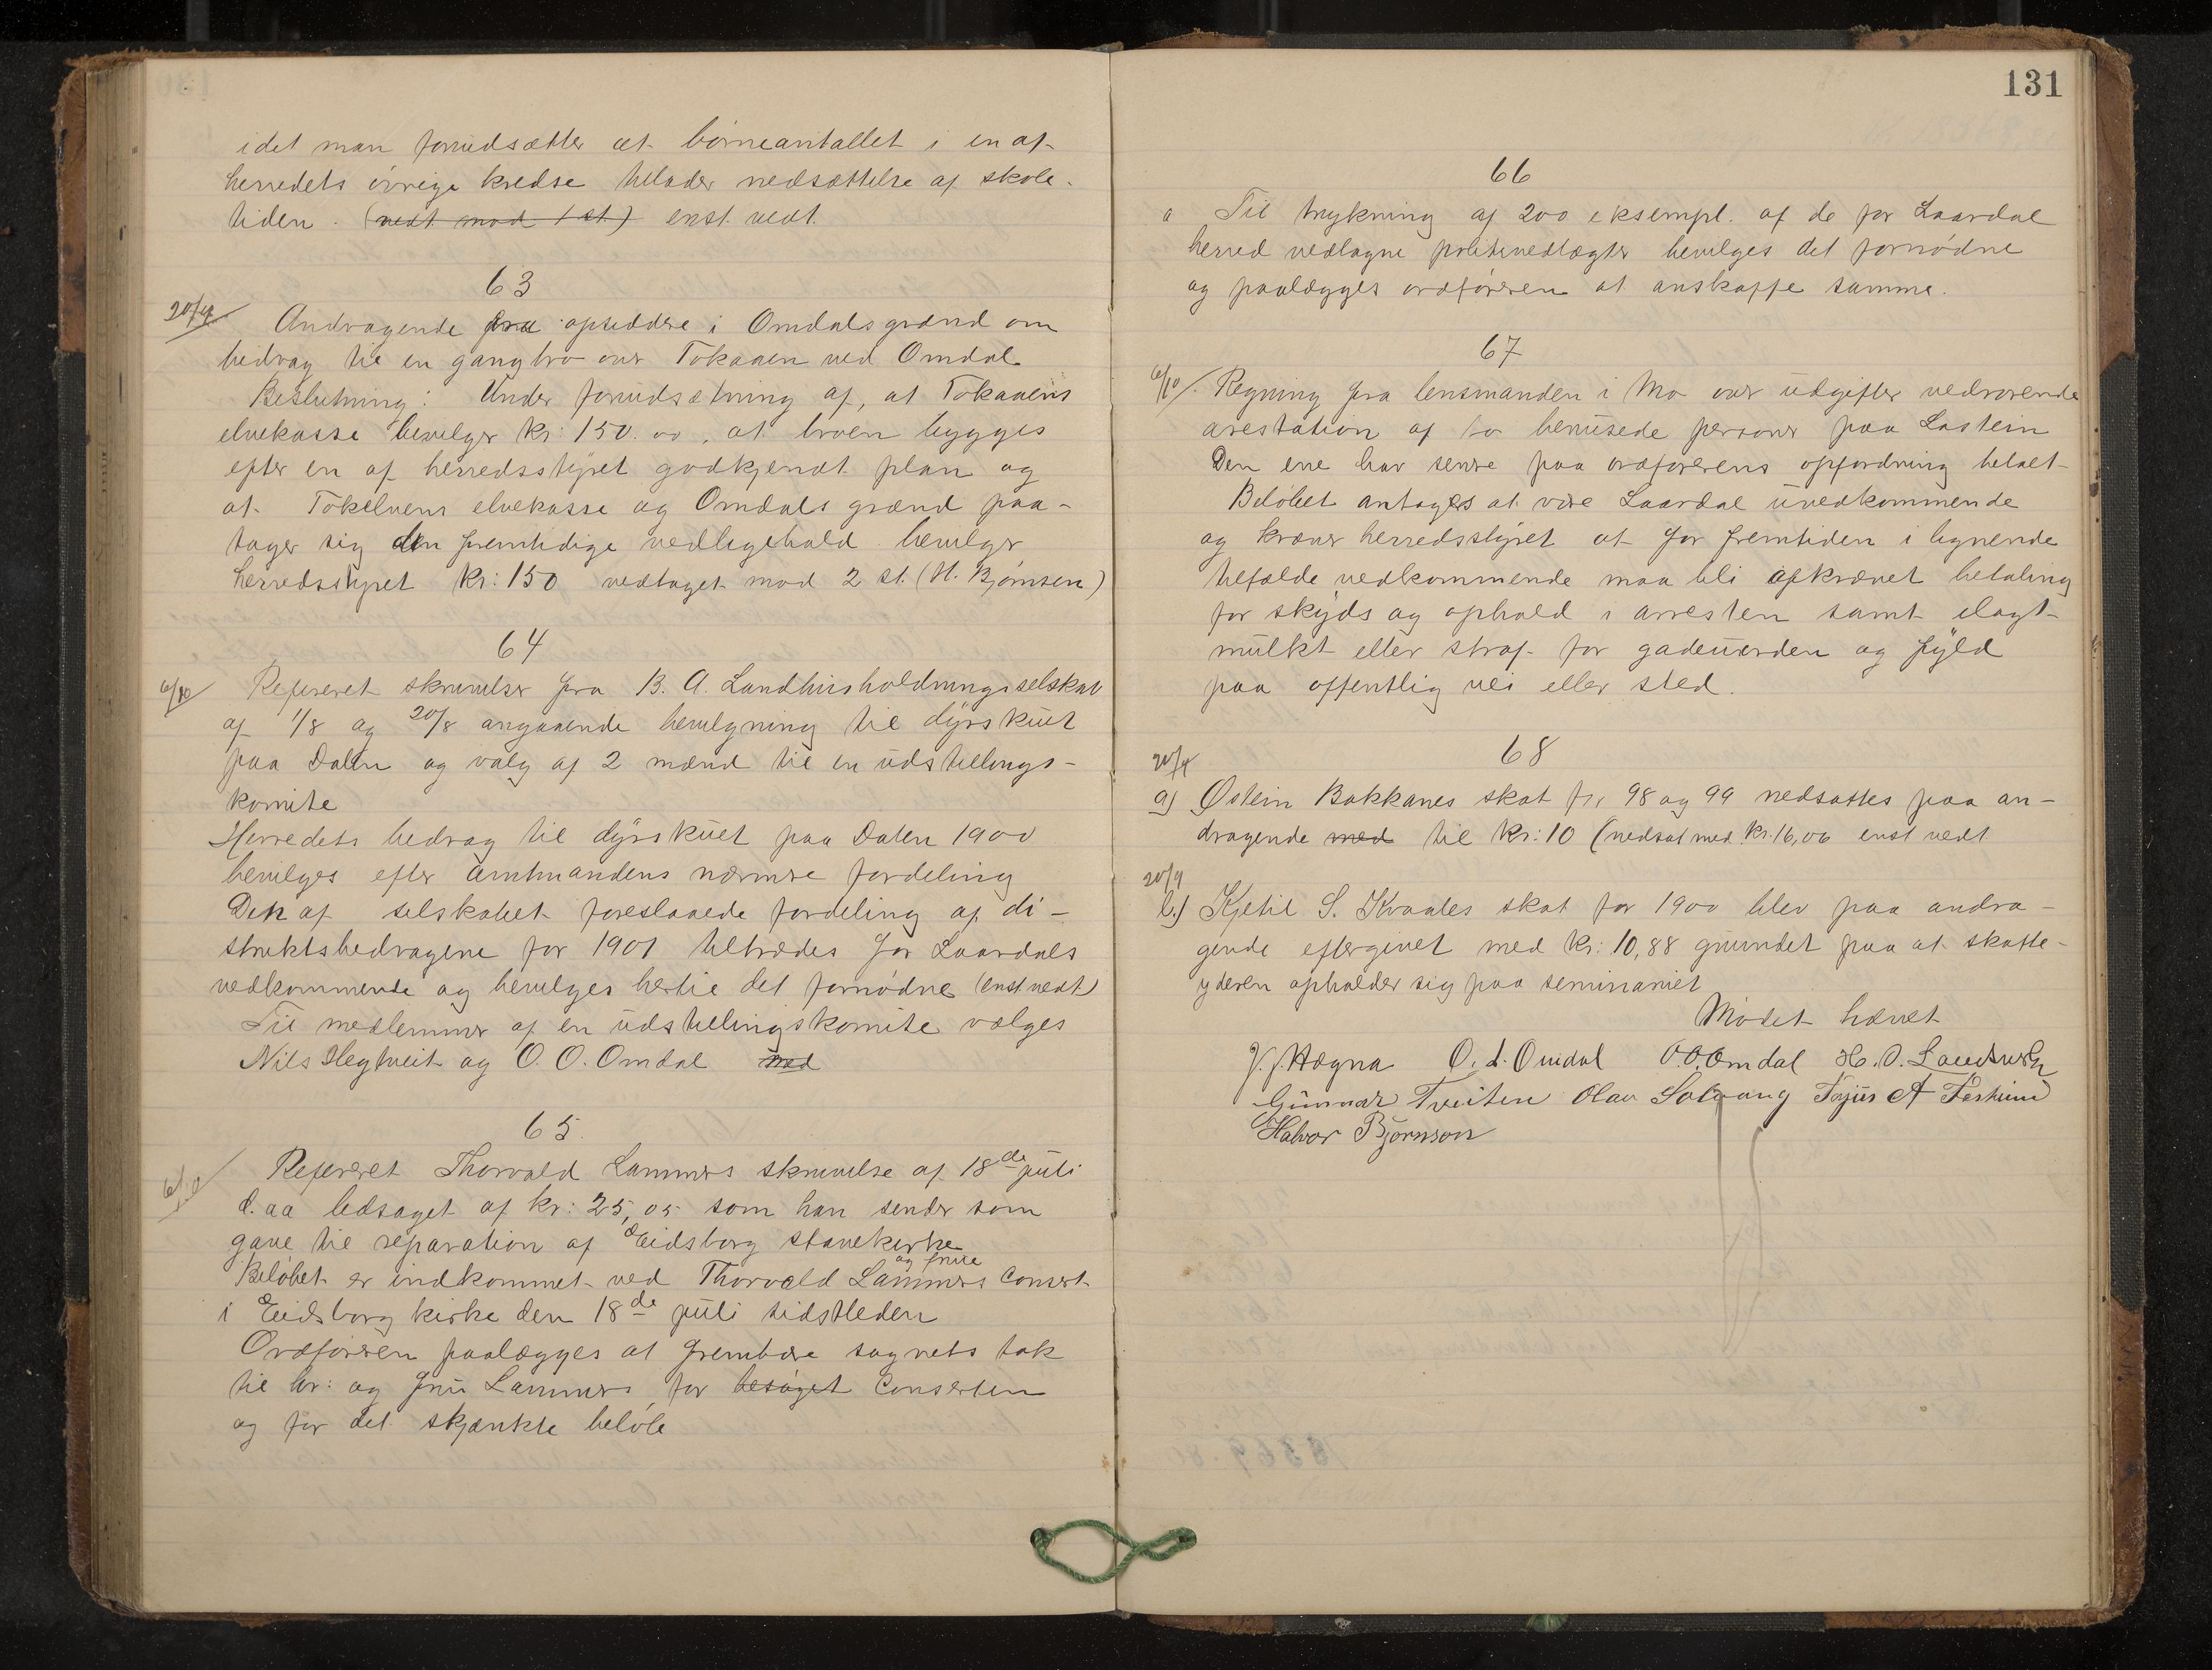 idet man forudsætter at börneantallet i en af
herredets övrige kredse tillader nedsættelse af skole-
tiden. (vedt. mod 1 st.) enst. vedt.
63
20/9 Andragende fra opsiddere i Omdalsgrænd om
bidrag til en gangbro over Tokaaen ved Omdal
Beslutning: Under forudsætning af, at Tokaaens
elvekasse bevilger kr: 150.00, at broen bygges
efter en af herredsstyret godkjendt plan og
at Tokelvens elvekasse og Omdals grænd paa-
tager sig den fremtidige vedligehold bevilger
herredsstyret kr: 150 vedtaget mod 2 st. (H. Björnsen)
64
6/10 Refereret skrivelser fra B. A. Landhusholdningsselskab
af 1/8 og 20/8 angaaende bevilgning til dyrskuet
paa Dalen og valg af 2 mænd til en udstillings-
komite
Herredets bidrag til dyrskuet paa Dalen 1900
bevilges efter amtmandens nærmere fordeling
Den af selskabet foreslaaede fordeling af di-
striktsbidragene for 1901 tiltrædes for Laardals
vedkommende og bevilges hertil det fornødne (enst. vedt)
Til medlemmer af en udstillingskomite vælges
Nils Hegtveit og O. O. Omdal med
65.
6/10 Refereret Thorvald Lammers skrivelse af 18de juli
d. aa ledsaget af kr: 25,05 som han sender som
gave til reparation af Eidsborg stavekirke
og frue
Beløbet er indkommet ved Thorvald Lammers Consert
i Eidsborg kirke den 18de juli sidstleden
Ordföreren paalægges at frembære sognets tak
til hr: og fru Lammers for besöget Conserten
og for det skjænkte belöb
131
66
a Til trykning af 200 eksempl. af de for Laardal
herred vedtagne politivedtægter bevilges det fornödne
og paalægges ordföreren at anskaffe samme.
67
6/10 Regning fra lensmanden i Mo over udgifter vedrørende
arestation af to berusede personer paa Lastein
Den ene har senere paa ordförerens opfordring betalt
Belöbet antages at være Laardal uvedkommende
og kræver herredsstyret at for fremtiden i lignende
tilfælde vedkommende maa bli afkrævet betaling
for skyds og ophold i arresten samt ilagt
mulkt eller straf for gadeuorden og fyld
paa offentlig vei eller sted.
68
20/9
a) Østein Bakkanes skat for 98 og 99 nedsattes paa an-
dragende med til kr: 10 (nedsat med kr. 16,06 enst vedt
20/9
b.) Kjetil S. Kvaales skat for 1900 blev paa andra-
gende eftergivet med kr: 10,88 grundet paa at skatte-
yderen opholder sig paa seminariet
Mödet hævet
J. J. Hægna O. L. Omdal O. O. Omdal H. O. Landsverk
Gunnar Tveiten Olav Solvang Tarjus A
Halvor Bjørnson